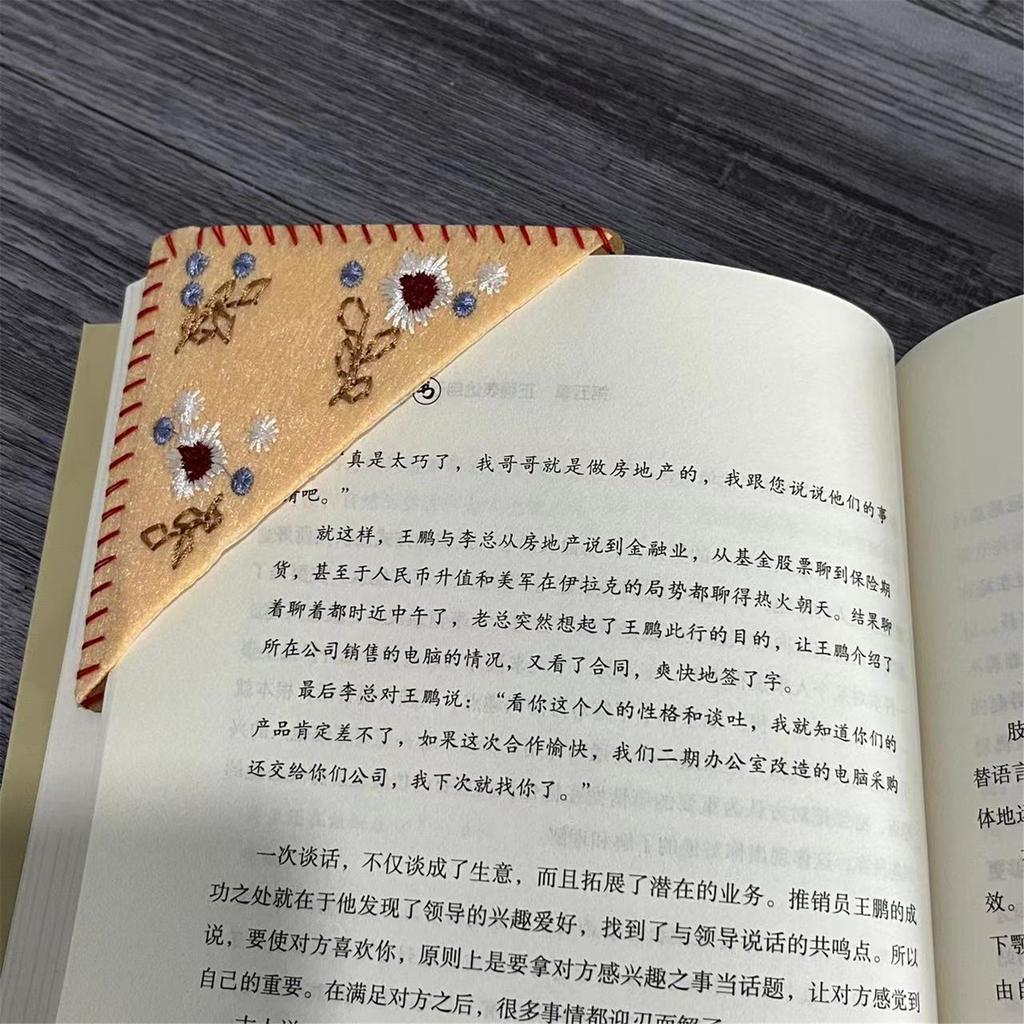 书
“真是太巧了，我哥哥就是做房地产的，我跟您说说他们的事
情吧。”
就这样，王鹏与李总从房地产说到金融业，从基金股票聊到保险期
货，甚至于人民币升值和美军在伊拉克的局势都聊得热火朝天。结果聊
着聊着都时近中午了，老总突然想起了王鹏此行的目的，让王鹏介绍了
所在公司销售的电脑的情况，又看了合同，爽快地签了字。
最后李总对王鹏说：“看你这个人的性格和谈吐，我就知道你们的
产品肯定差不了，如果这次合作愉快，我们二期办公室改造的电脑采购
还交给你们公司，我下次就找你了。”
一次谈话，不仅谈成了生意，而且拓展了潜在的业务。推销员王鹏的成
功之处就在于他发现了领导的兴趣爱好，找到了与领导说话的共鸣点。所以
说，要使对方喜欢你，原则上是要拿对方感兴趣之事当话题，让对方感觉到
自己的重要。在满足对方之后，很多事情都迎刃而解了
古人说
肢
替语言
体地运
效。
下颚
由自